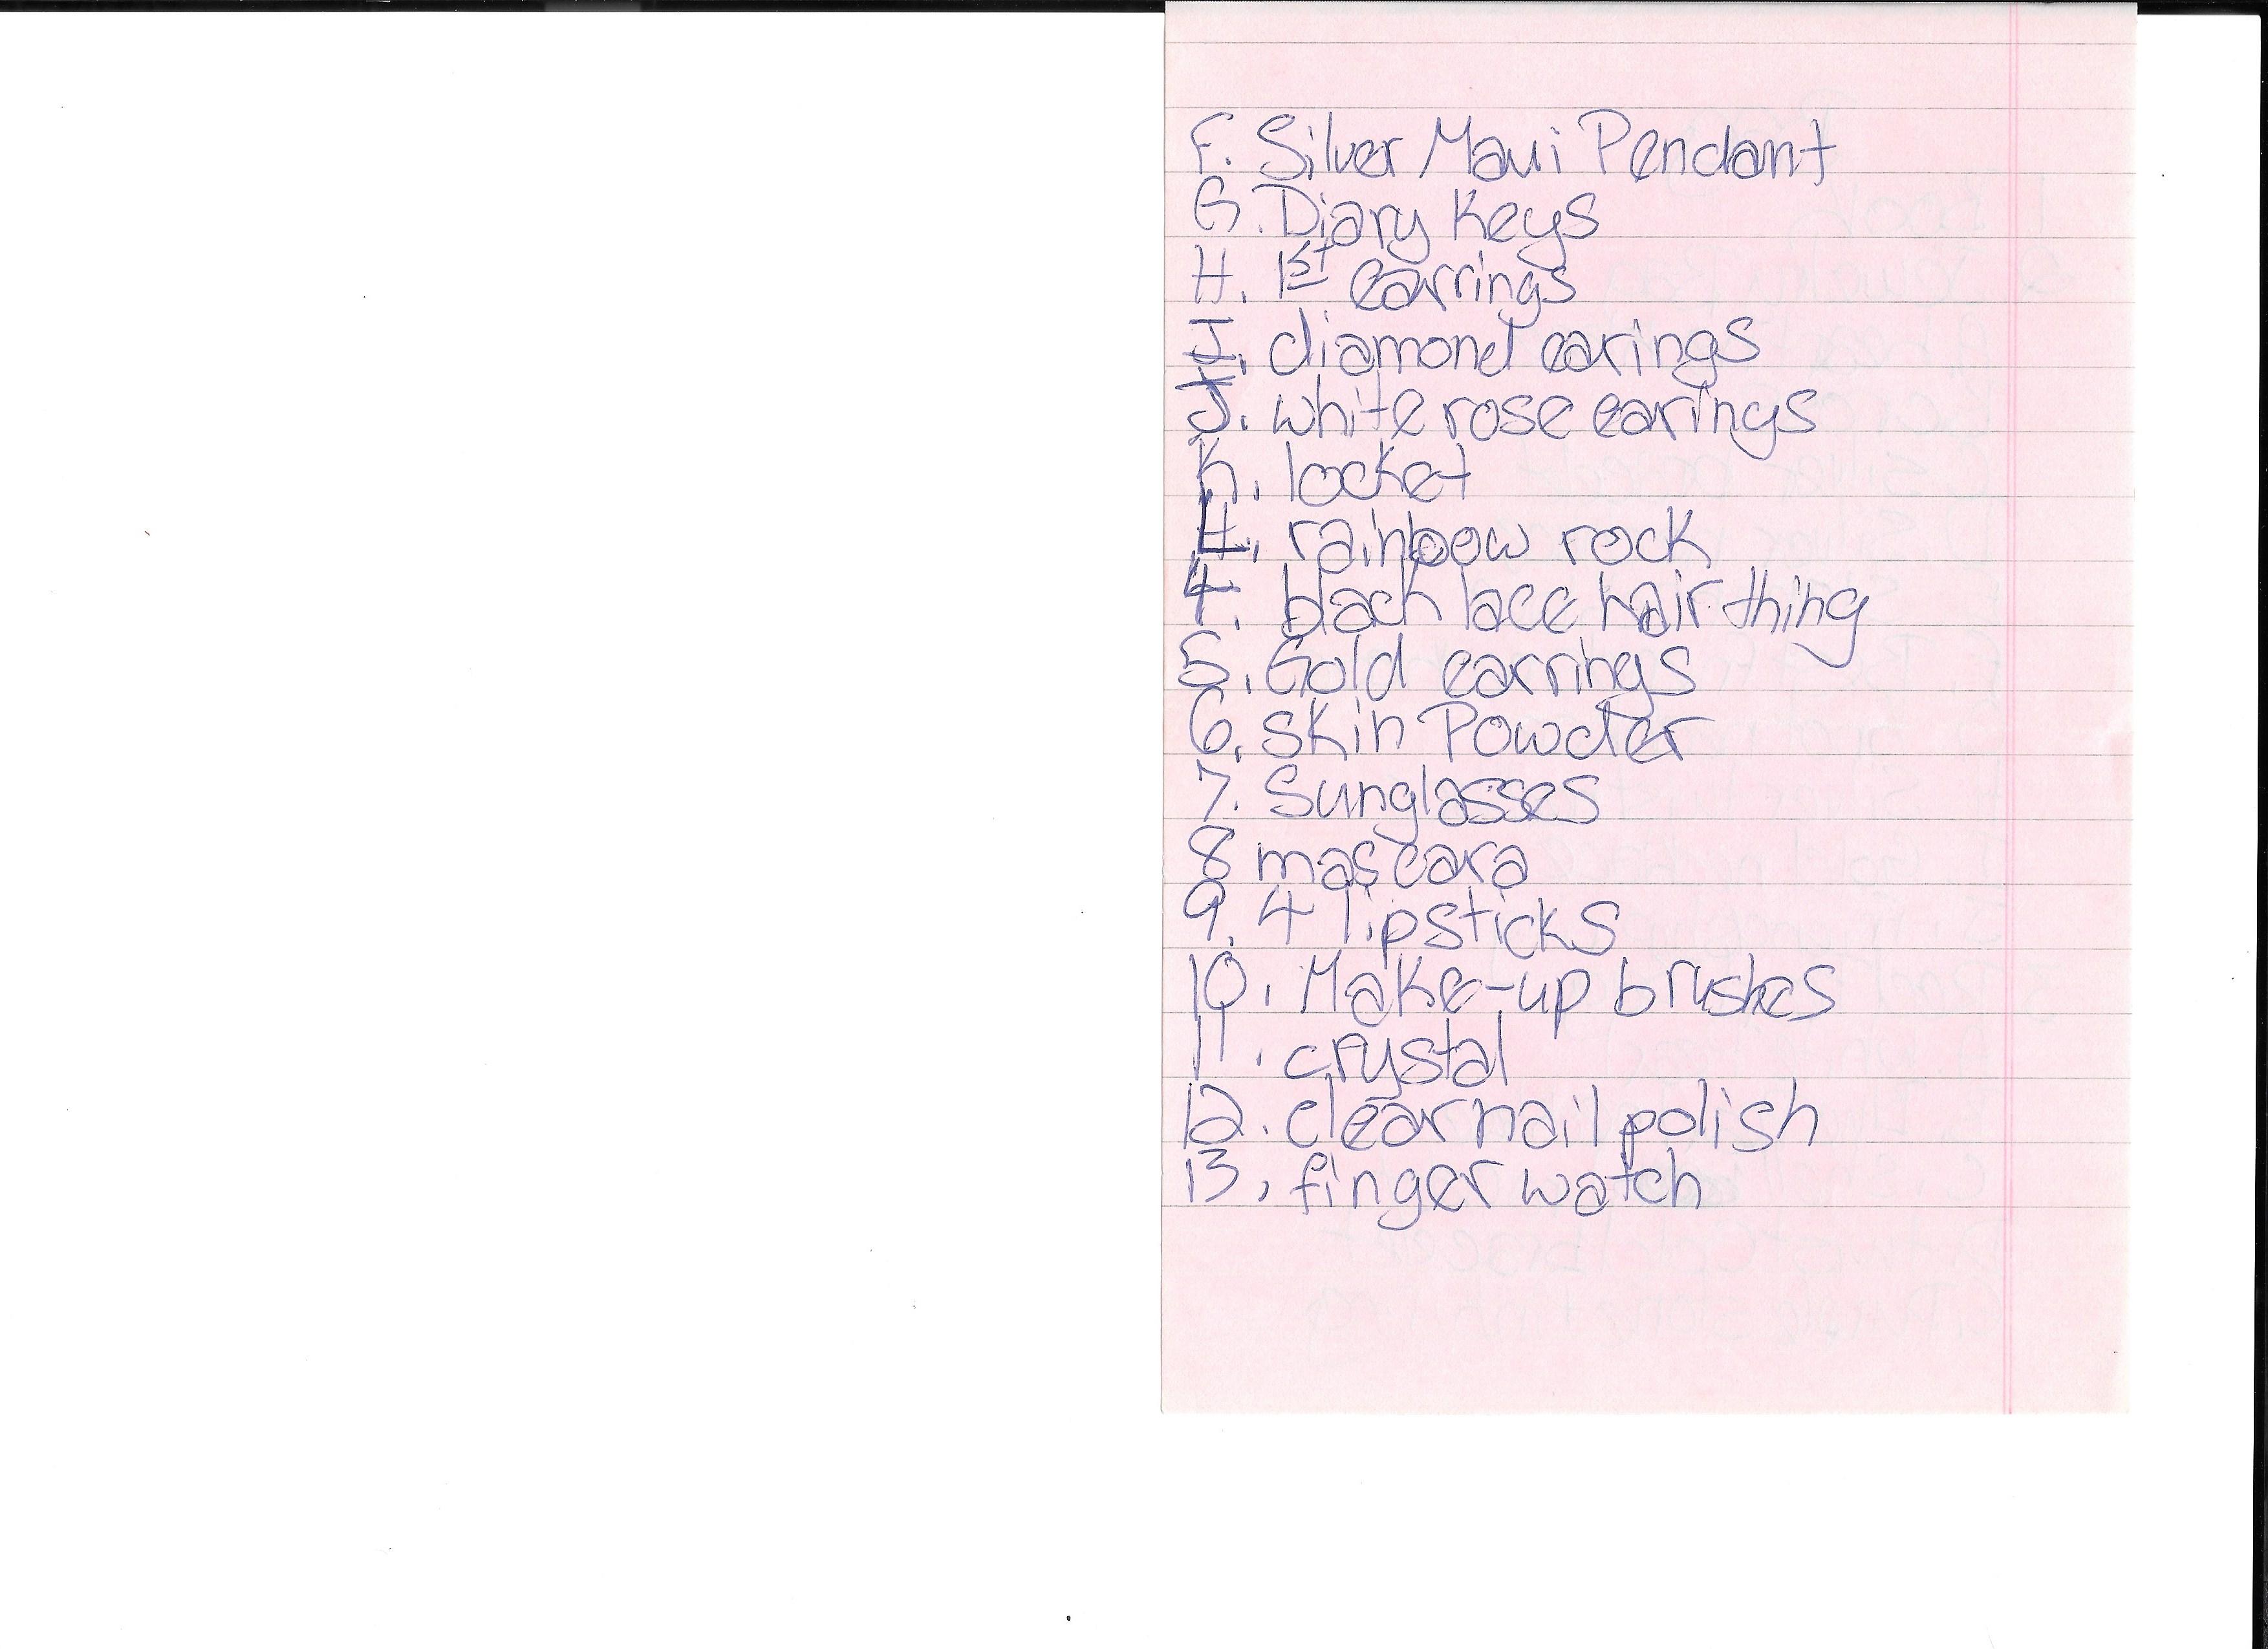 F. Silver Maui Pendant
G. Diary Keys
H. 1st earrings
I. diamond earings
J. white rose earings
K. locket
L. rainbow rock
4. black lace hair thing
5. Gold earrings
6. Skin Powder
7. Sunglasses
8 mascara
9. 4 lipsticks
10. Make-up brushes
11. crystal
12. clear nail polish
13. finger watch